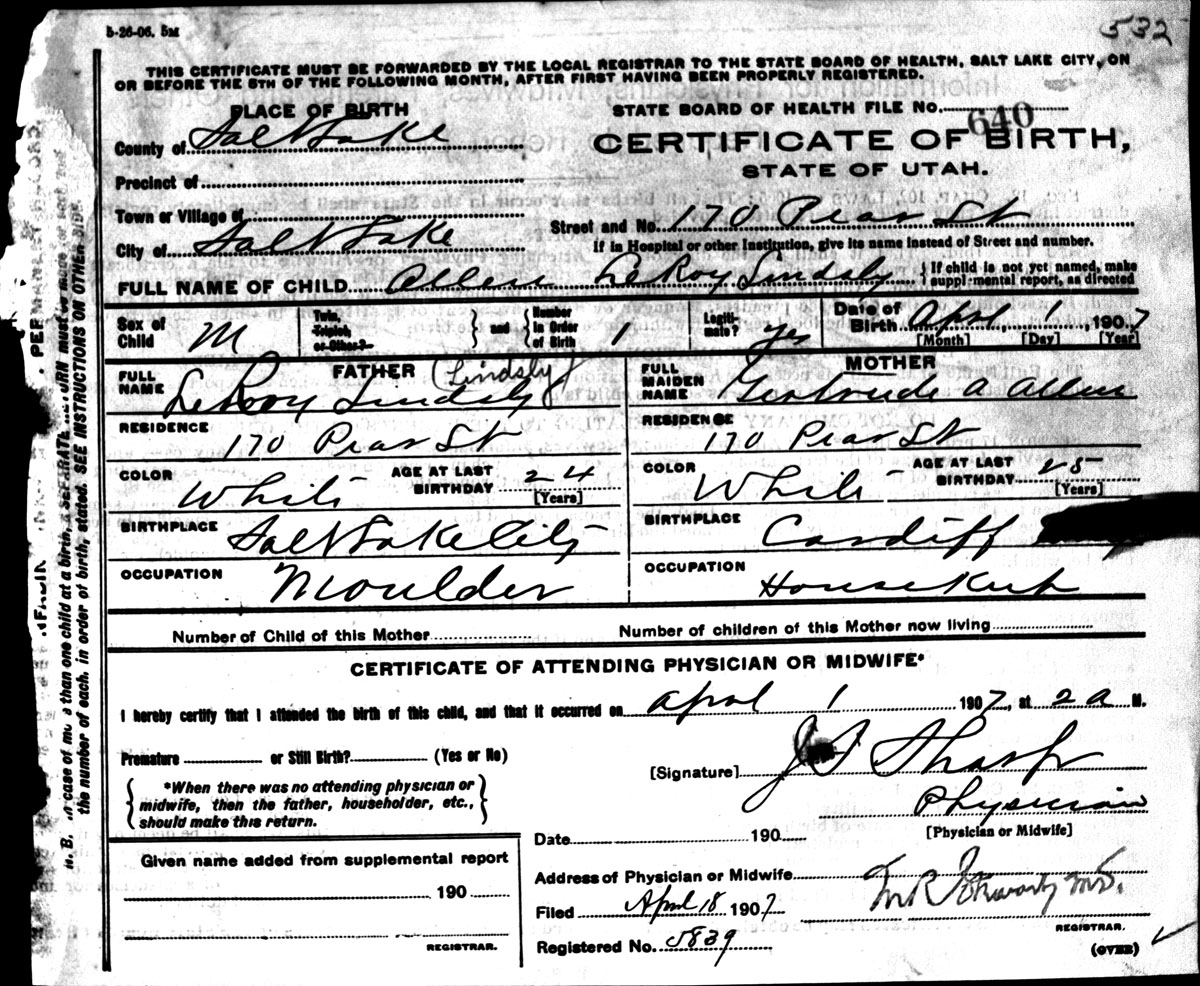 5-26-06. 5M
532
THIS CERTIFICATE MUST BE FORWARDED BY THE LOCAL REGISTRAR TO THE STATE BOARD OF HEALTH, SALT LAKE CITY, ON
OR BEFORE THE 5TH OF THE FOLLOWING MONTH, AFTER FIRST HAVING BEEN PROPERLY REGISTERED.
PLACE OF BIRTH
STATE BOARD OF HEALTH FILE NO. 640
County of Salt Lake
CERTIFICATE OF BIRTH,
STATE OF UTAH.
Precinct of
Town or Village of
Street and No. 170 Pear St
City of Salt Lake
If in Hospital or other Institution, give its name instead of Street and number.
FULL NAME OF CHILD Allen LeRoy Lindsly
{ If child is not yet named, make
supplemental report, as directed
Sex of Child M
Twin, Triplet, or Other?
} and { Number in Order of Birth 1
Legitimate? yes
Date of Birth April 1, 1907
[Month] [Day] [Year]
FATHER (Lindsly)
FULL NAME LeRoy Lindsly
MOTHER
FULL MAIDEN NAME Gertrude A Allen
RESIDENCE 170 Pear St
RESIDENCE 170 Pear St
COLOR White
AGE AT LAST BIRTHDAY 24
[Years]
COLOR White
AGE AT LAST BIRTHDAY 25
[Years]
BIRTHPLACE Salt Lake City
BIRTHPLACE Cardiff
OCCUPATION Moulder
OCCUPATION HouseKeep
Number of Child of this Mother
Number of children of this Mother now living
CERTIFICATE OF ATTENDING PHYSICIAN OR MIDWIFE*
I hereby certify that I attended the birth of this child, and that it occurred on April 1 1907, at 2 a M.
Premature or Still Birth? (Yes or No)
[Signature] J S Sharp
{ *When there was no attending physician or
midwife, then the father, householder, etc.,
should make this return. }
Physician
[Physician or Midwife]
Date 190
Given name added from supplemental report
190
REGISTRAR.
Address of Physician or Midwife
Filed April 18 1907
M.D.
REGISTRAR.
Registered No. 5839
(OVER)
N. B. In case of more than one child at a birth, a SEPARATE RETURN must be made of each, and
the number of each, in order of birth, stated. SEE INSTRUCTIONS ON OTHER SIDE.